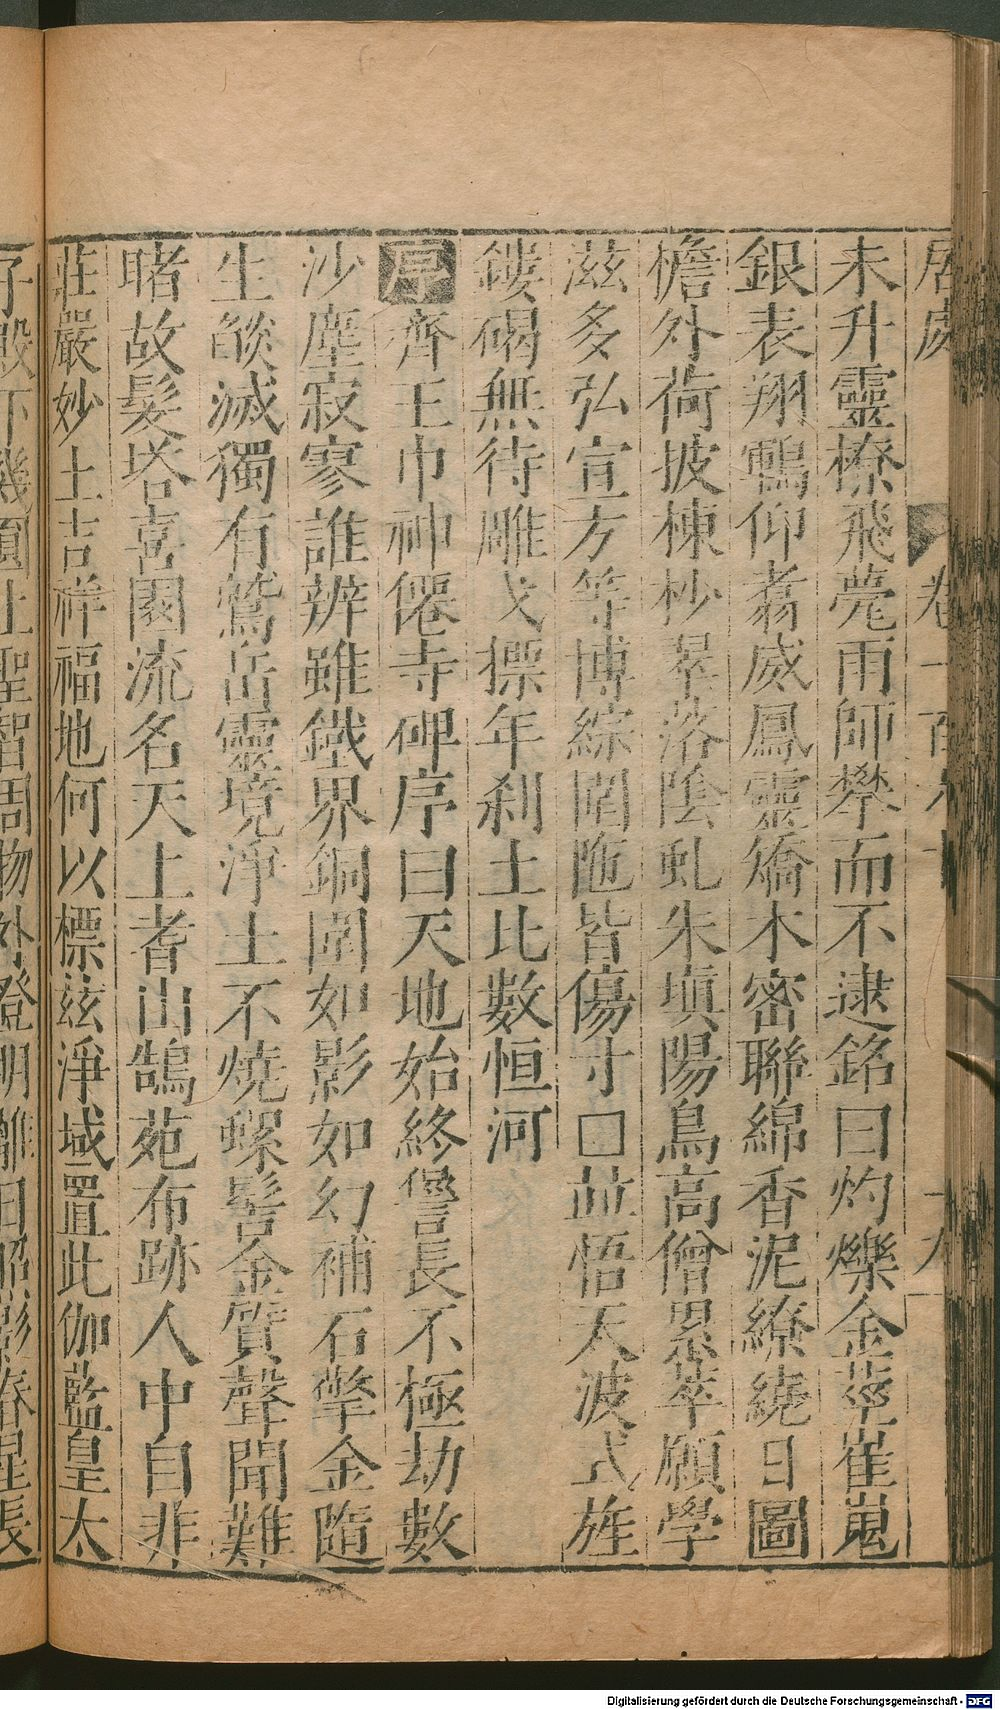 居處 卷一百八十 十九
未升靈橑飛甍雨師攀而不逮銘曰灼爍金莖崔嵬
銀表翔鶤仰翥威鳳靈矯木密聯綿香泥繚繞日圖
檐外荷披棟杪翠落陰虬朱塡陽鳥高僧累萃願學
滋多弘宣方等博綜闍陁皆傷寸□並悟天波式旌
鏤碣無待雕戈摽年刹土比數恒河
序齊王巾神僊寺碑序曰天地始終譬長不極劫數
沙塵寂寥誰辨雖鐵界銅圍如影如幻補石擎金隨
生燄滅獨有鷲岳靈境淨土不燒螺髻金質聲聞難
睹故髮塔喜園流名天上耆山鵠苑布跡人中自非
莊嚴妙土吉祥福地何以標茲淨域置此伽藍皇太
子殿下幾圓上聖智周物外登明離日昭影春星長
Digitalisierung gefördert durch die Deutsche Forschungsgemeinschaft - DFG